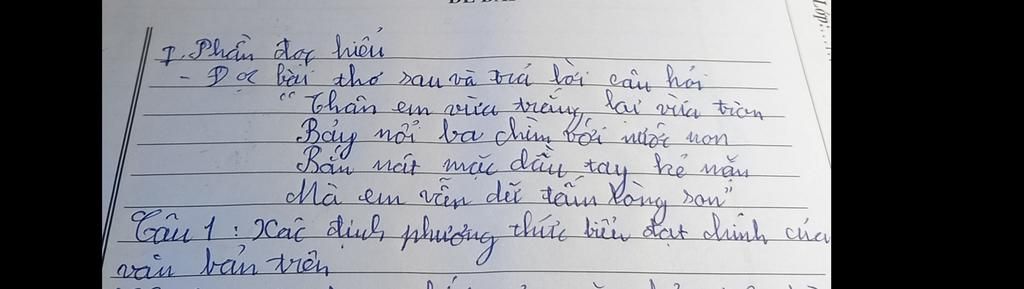 I. Phần đọc hiểu
- Đọc bài thơ sau và trả lời câu hỏi
"Thân em vừa trắng lại vừa tròn
Bảy nổi ba chìm với nước non
Rắn nát mặc dầu tay kẻ nặn
Mà em vẫn giữ tấm lòng son"
Câu 1: Xác định phương thức biểu đạt chính của
văn bản trên
Lớp: